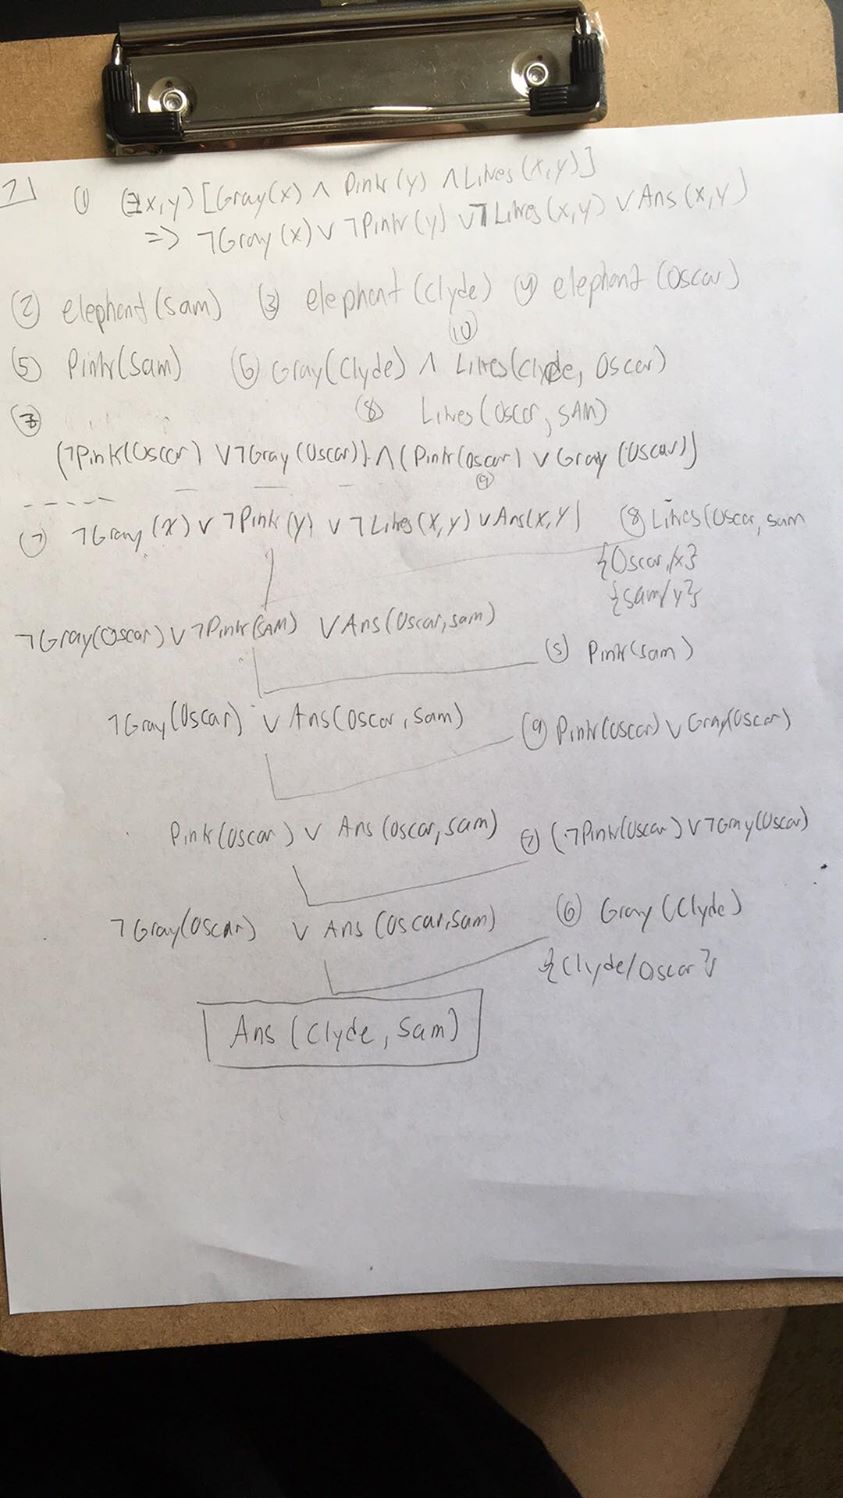 7]
① (∃x,y)[Gray(x) ∧ Pink(y) ∧ Likes(x,y)]
=> ¬Gray(x) ∨ ¬Pink(y) ∨ ¬Likes(x,y) ∨ Ans(x,y)
② elephant(Sam) ③ elephant(Clyde) ④ elephant(Oscar)
⑩
⑤ Pink(Sam) ⑥ Gray(Clyde) ∧ Likes(Clyde, Oscar)
⑦ ⑧ Likes(Oscar, SAM)
(¬Pink(Oscar) ∨ ¬Gray(Oscar)) ∧ (Pink(Oscar) ∨ Gray(Oscar))
⑨
① ¬Gray(x) ∨ ¬Pink(y) ∨ ¬Likes(x,y) ∨ Ans(x,y) ⑧ Likes(Oscar, sam
{Oscar/x}
{sam/y}
¬Gray(Oscar) ∨ ¬Pink(SAM) ∨ Ans(Oscar, sam)
⑤ Pink(sam)
¬Gray(Oscar) ∨ Ans(Oscar, Sam) ⑨ Pink(Oscar) ∨ Gray(Oscar)
Pink(Oscar) ∨ Ans(Oscar, sam) ⑦ (¬Pink(Oscar) ∨ ¬Gray(Oscar)
¬Gray(Oscar) ∨ Ans(Oscar, Sam) ⑥ Gray(Clyde)
{Clyde/Oscar}
Ans(Clyde, Sam)